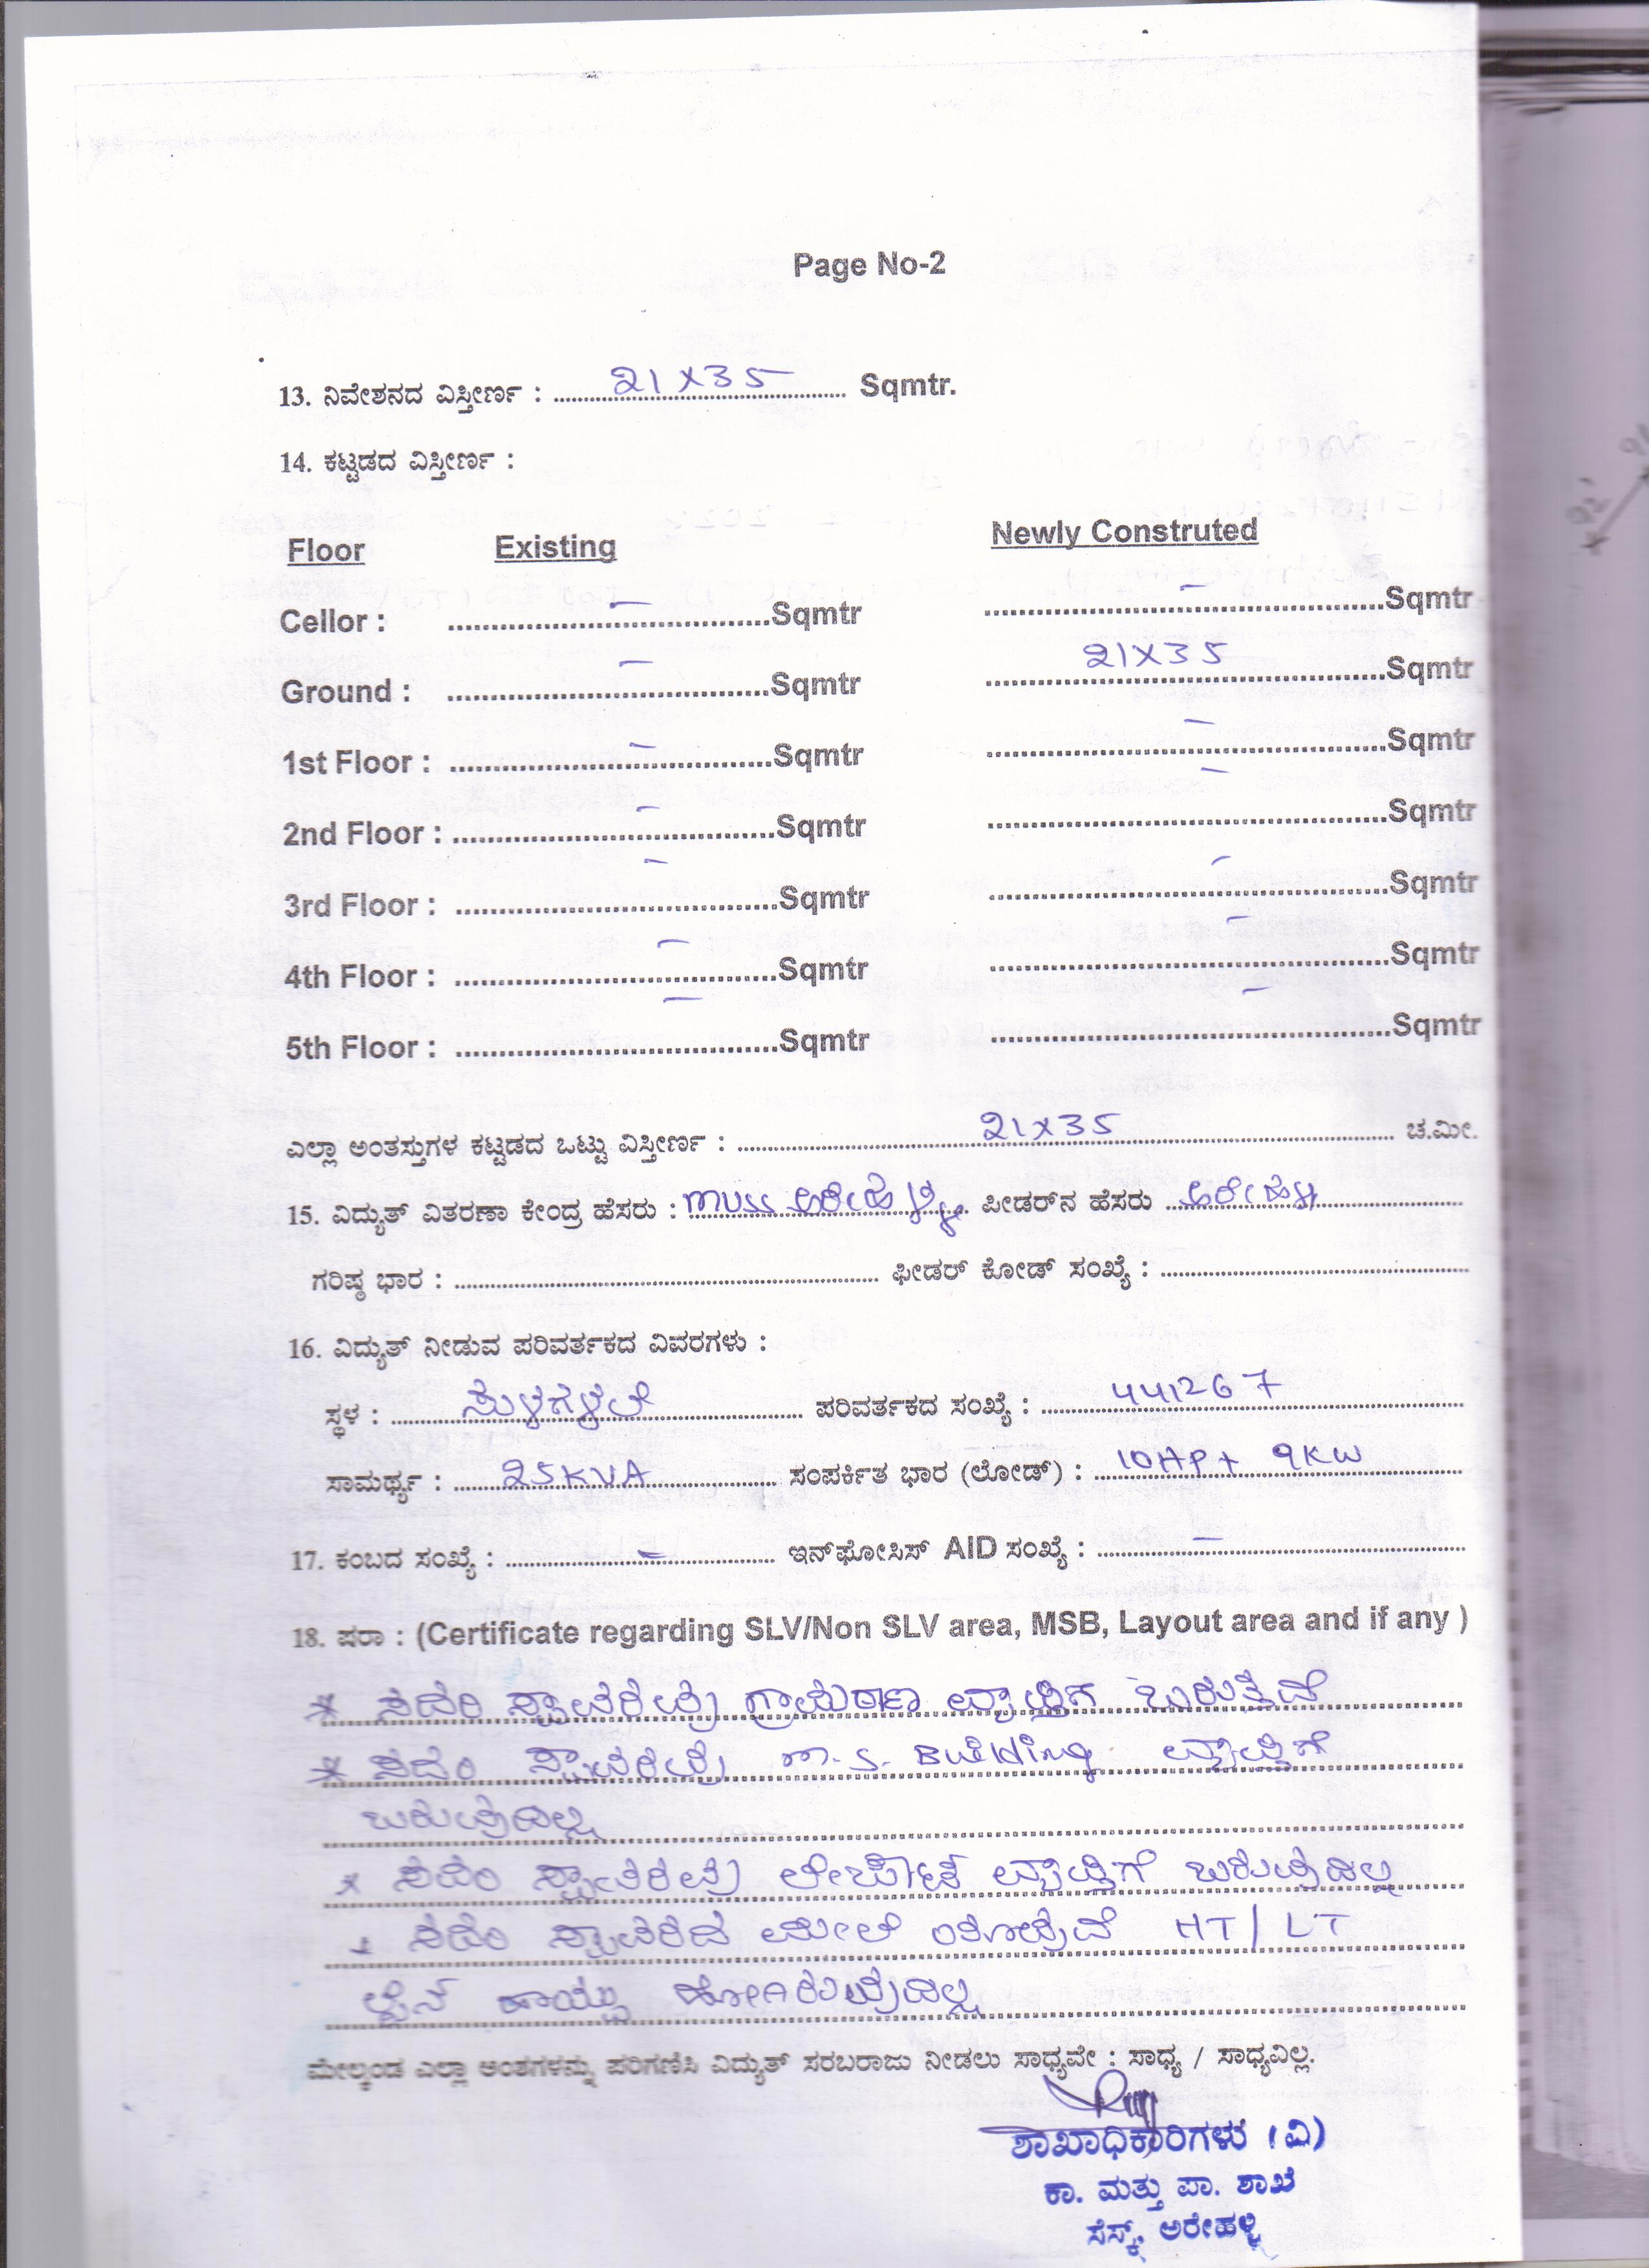 Page No-2
13. ನಿವೇಶನದ ವಿಸ್ತೀರ್ಣ : 21X35 Sqmtr.
14. ಕಟ್ಟಡದ ವಿಸ್ತೀರ್ಣ :
Floor Existing Newly Construted
Cellor : – Sqmtr – Sqmtr
Ground : – Sqmtr 21X35 Sqmtr
1st Floor : – Sqmtr – Sqmtr
2nd Floor : – Sqmtr – Sqmtr
3rd Floor : – Sqmtr – Sqmtr
4th Floor : – Sqmtr – Sqmtr
5th Floor : – Sqmtr – Sqmtr
ಎಲ್ಲಾ ಅಂತಸ್ತುಗಳ ಕಟ್ಟಡದ ಒಟ್ಟು ವಿಸ್ತೀರ್ಣ : 21x35 ಚ.ಮೀ.
15. ವಿದ್ಯುತ್ ವಿತರಣಾ ಕೇಂದ್ರ ಹೆಸರು : MUSS ಅರೇಹಳ್ಳಿ ಪೀಡರ್‌ನ ಹೆಸರು ಅರೇಹಳ್ಳಿ
ಗರಿಷ್ಠ ಭಾರ : ಫೀಡರ್ ಕೋಡ್ ಸಂಖ್ಯೆ :
16. ವಿದ್ಯುತ್ ನೀಡುವ ಪರಿವರ್ತಕದ ವಿವರಗಳು :
ಸ್ಥಳ : ಪರಿವರ್ತಕದ ಸಂಖ್ಯೆ : 441267
ಸಾಮರ್ಥ್ಯ : 25KVA ಸಂಪರ್ಕಿತ ಭಾರ (ಲೋಡ್) : 10HP+ 9KW
17. ಕಂಬದ ಸಂಖ್ಯೆ : – ಇನ್‌ಫೋಸಿಸ್ AID ಸಂಖ್ಯೆ : –
18. ಷರಾ : (Certificate regarding SLV/Non SLV area, MSB, Layout area and if any )
* ಸದರಿ ಸ್ಥಾವರವು ಗ್ರಾಮೀಣ ವ್ಯಾಪ್ತಿಗೆ ಬರುತ್ತದೆ
* ಸದರಿ ಸ್ಥಾವರವು M.S. Building ವ್ಯಾಪ್ತಿಗೆ
ಬರುವುದಿಲ್ಲ
* ಸದರಿ ಸ್ಥಾವರವು ಲೇಔಟ್ ವ್ಯಾಪ್ತಿಗೆ ಬರುವುದಿಲ್ಲ
* ಸದರಿ ಸ್ಥಾವರದ ಮೇಲೆ ಯಾವುದೇ HT/LT
ಲೈನ್ ಹಾಯ್ದು ಹೋಗಿರುವುದಿಲ್ಲ
ಮೇಲ್ಕಂಡ ಎಲ್ಲಾ ಅಂಶಗಳನ್ನು ಪರಿಗಣಿಸಿ ವಿದ್ಯುತ್ ಸರಬರಾಜು ನೀಡಲು ಸಾಧ್ಯವೇ : ಸಾಧ್ಯ / ಸಾಧ್ಯವಿಲ್ಲ.
ಶಾಖಾಧಿಕಾರಿಗಳು (ವಿ)
ಕಾ. ಮತ್ತು ಪಾ. ಶಾಖೆ
ಸೆಸ್ಕ್, ಅರೇಹಳ್ಳಿ